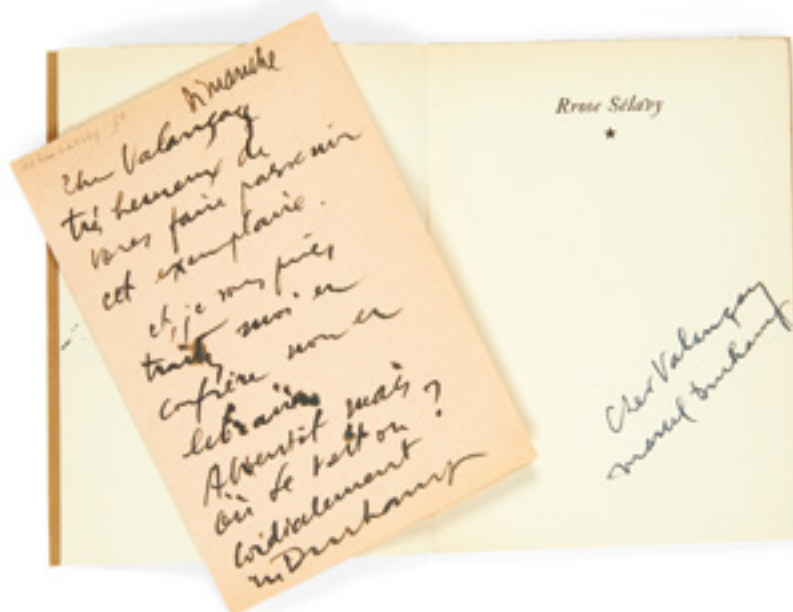 Dimanche
Cher Valançay
très heureux de
vous faire parvenir
cet exemplaire.
et, je vous prie,
traitez moi en
confrère non en
libraire
mais
où se
cordialement
M Duchamp
Rrose Sélavy
★
Cher Valançay
Marcel Duchamp